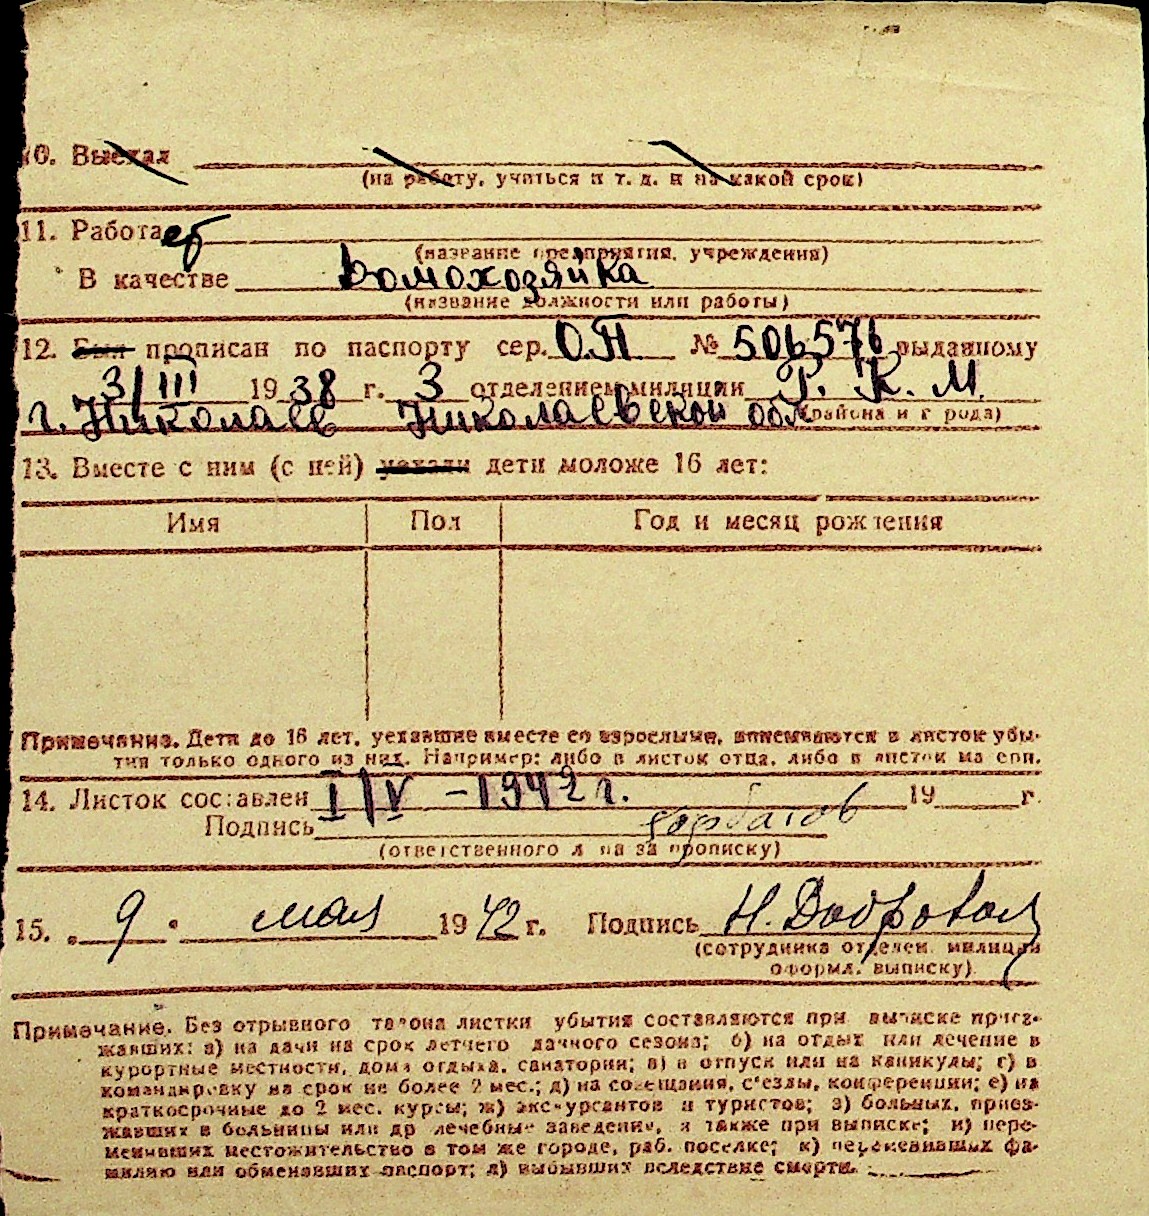 10. Выехал
(на работу, учиться и т. д. и на какой срок)
11. Работает
(название предприятия, учреждения)
В качестве домохозяйка
(название должности или работы)
12. Был прописан по паспорту сер. О.П № 506576 выданному
3/III 1938 г. 3 отделением милиции Р. К. М.
г. Николаев Николаевской обл (района и города)
13. Вместе с ним (с ней) уехали дети моложе 16 лет:
Имя Пол Год и месяц рождения
Примечание. Дети до 16 лет, уехавшие вместе со взрослыми, вписываются в листок убы-
тия только одного из них. Например: либо в листок отца, либо в листок матери.
14. Листок составлен I/V - 1942 г. 19 г.
Подпись
(ответственного лица за прописку)
15. „ 9 " мая 1942 г. Подпись Н. Добровол
(сотрудника отделен. милиции
оформл. выписку)
Примечание. Без отрывного талона листки убытия составляются при выписке приез-
жавших: а) на дачи на срок летнего дачного сезона; б) на отдых или лечение в
курортные местности, дома отдыха, санатории; в) в отпуск или на каникулы; г) в
командировку на срок не более 2 мес.; д) на совещания, с'езды, конференции; е) на
краткосрочные до 2 мес. курсы; ж) экскурсантов и туристов; з) больных, приез-
жавших в больницы или др лечебные заведения, а также при выписке; и) пере-
менивших местожительство в том же городе, раб. поселке; к) переменивших фа-
милию или обменявших паспорт; л) выбывших вследствие смерти.